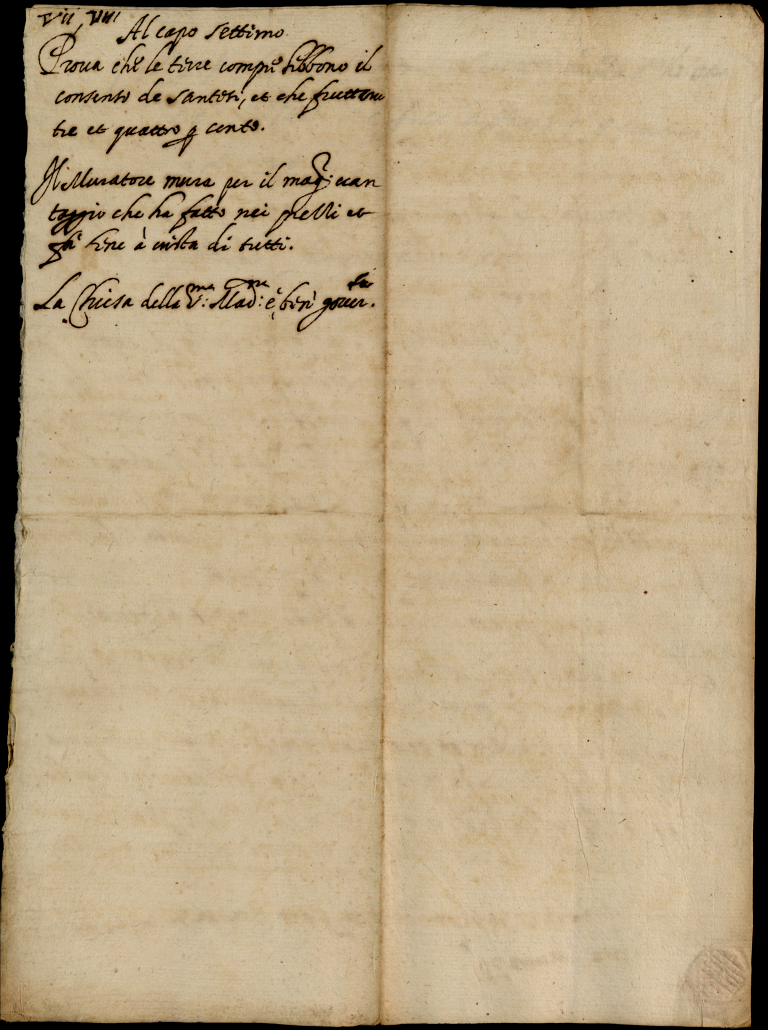 VII, VIII
Al capo settimo
Proua che le terre compre hebbono il
consenso de santesi, et che fruttono
tre et quattro p cento.
Il Muratore mura per il mag: uan
taggio che ha fatto nei prezzi et
fà bene à uista di tutti.
La Chiesa della v:ma Mad:na è ben gouer.ta